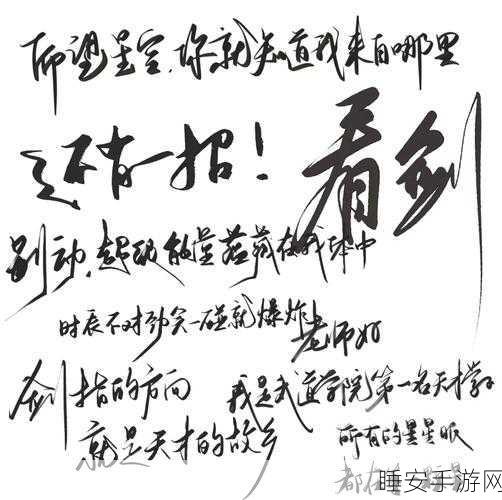 仰望星空，你就知道我来自哪里
还有一招！
看剑
别动，超凶的星落藏在我掌中
时辰不对劲 一碰就爆炸
老师好
剑指的方向
就是天才的故乡
我是武道学院第一名天才学子
所有的星星
睡安手游网